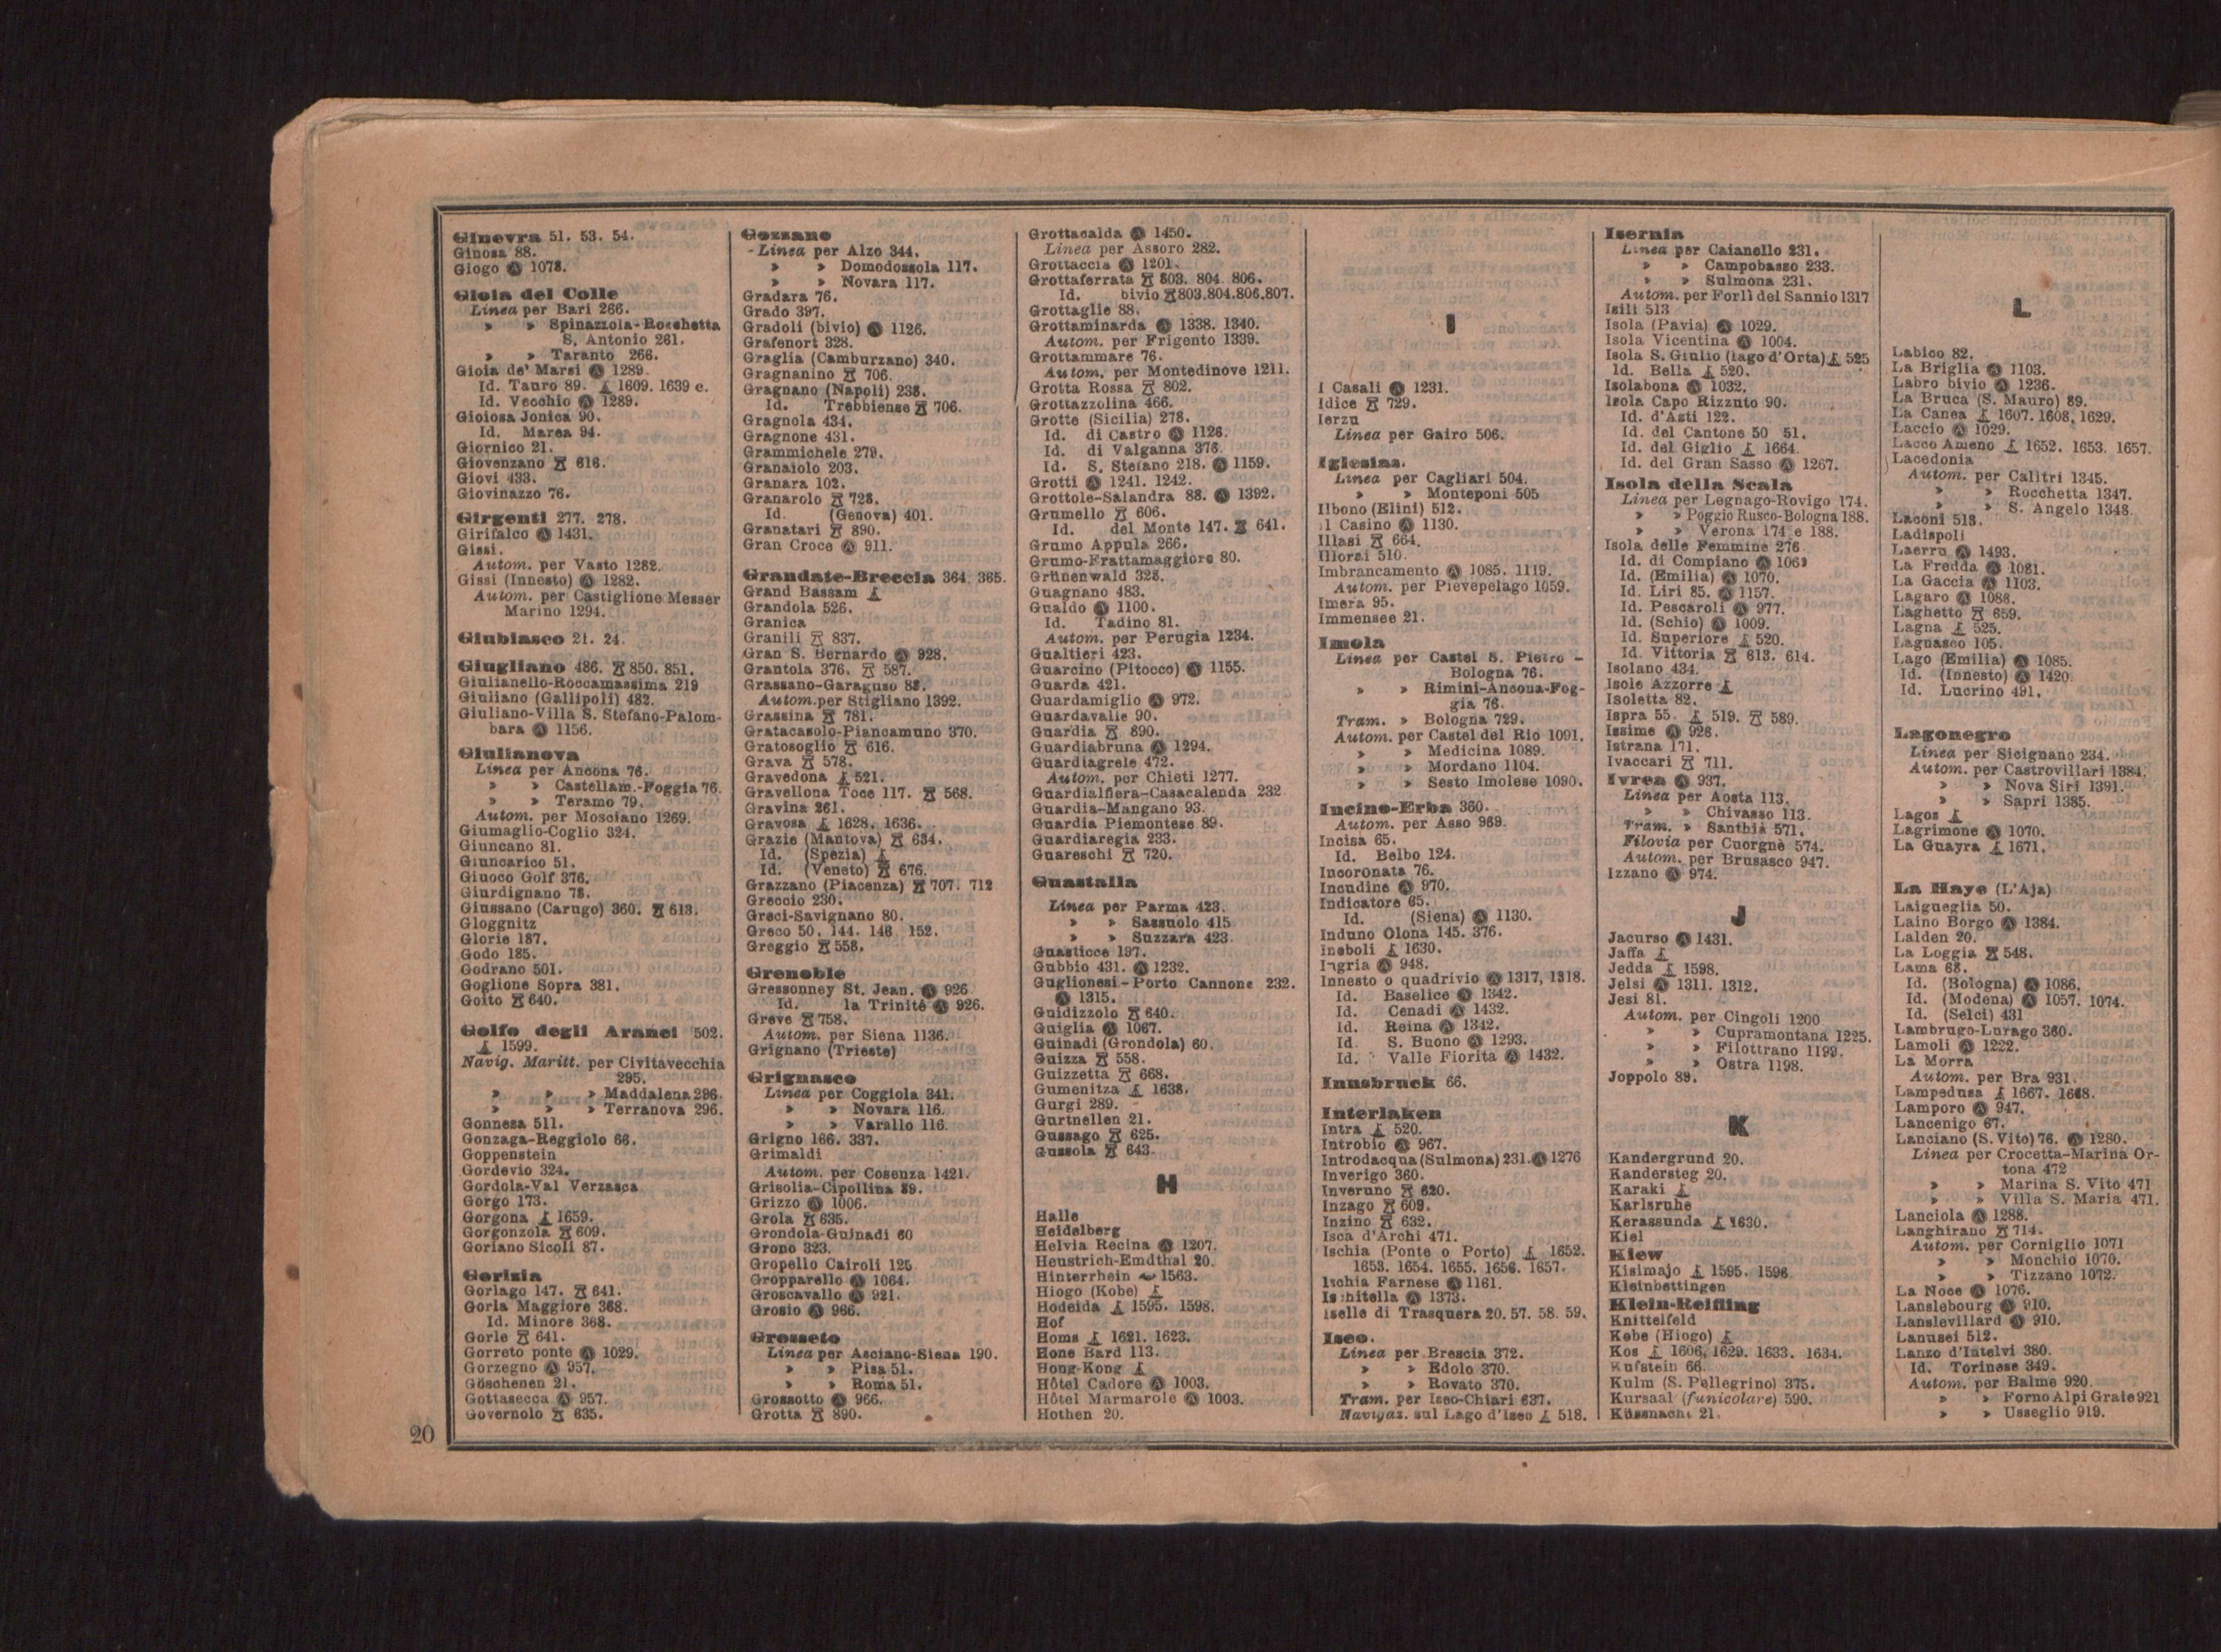 Ginevra 51. 53. 54.
Ginosa 88.
Giogo Ⓐ 1078.
Gioia del Colle
Linea per Bari 266.
» » Spinazzola-Rocchetta
S. Antonio 261.
» » Taranto 266.
Gioia de' Marsi Ⓐ 1289.
Id. Tauro 89. 1609. 1639 c.
Id. Vecchio Ⓐ 1289.
Gioiosa Jonica 90.
Id. Marea 94.
Giornico 21.
Giovenzano 616.
Giovi 433.
Giovinazzo 76.
Girgenti 277. 278.
Girifalco Ⓐ 1431.
Gissi.
Autom. per Vasto 1282.
Gissi (Innesto) Ⓐ 1282.
Autom. per Castiglione Messer
Marino 1294.
Giubiasco 21. 24.
Giugliano 486. 850. 851.
Giulianello-Roccamassima 219
Giuliano (Gallipoli) 482.
Giuliano-Villa S. Stefano-Palom-
bara Ⓐ 1156.
Giulianova
Linea per Ancona 76.
» » Castellam.-Foggia 76.
» » Teramo 79.
Autom. per Mosciano 1269.
Giumaglio-Coglio 324.
Giuncano 81.
Giuncarico 51.
Giuoco Golf 376.
Giurdignano 78.
Giussano (Carugo) 360. 613.
Gloggnitz
Glorie 187.
Godo 185.
Godrano 501.
Goglione Sopra 381.
Goito 640.
Golfo degli Aranci 502.
1599.
Navig. Maritt. per Civitavecchia
295.
» » » Maddalena 296.
» » » Terranova 296.
Gonnesa 511.
Gonzaga-Reggiolo 66.
Goppenstein
Gordevio 324.
Gordola-Val Verzasca
Gorgo 173.
Gorgona 1659.
Gorgonzola 609.
Goriano Sicoli 87.
Gorizia
Gorlago 147. 641.
Gorla Maggiore 368.
Id. Minore 368.
Gorle 641.
Gorreto ponte Ⓐ 1029.
Gorzegno Ⓐ 957.
Göschenen 21.
Gottasecca Ⓐ 957.
Governolo 635.
Gozzano
Linea per Alzo 344.
» » Domodossola 117.
» » Novara 117.
Gradara 76.
Grado 397.
Gradoli (bivio) Ⓐ 1126.
Grafenort 328.
Graglia (Camburzano) 340.
Gragnanino 706.
Gragnano (Napoli) 238.
Id. Trebbiense 706.
Gragnola 434.
Gragnone 431.
Grammichele 279.
Granaiolo 203.
Granara 102.
Granarolo 728.
Id. (Genova) 401.
Granatari 890.
Gran Croce Ⓐ 911.
Grandate-Breccia 364. 365.
Grand Bassam
Grandola 526.
Granica
Granili 837.
Gran S. Bernardo Ⓐ 928.
Grantola 376. 587.
Grassano-Garaguso 88.
Autom. per Stigliano 1392.
Grassina 781.
Gratacasolo-Piancamuno 370.
Gratosoglio 616.
Grava 578.
Gravedona 521.
Gravellona Toce 117. 568.
Gravina 261.
Gravosa 1628. 1636.
Grazie (Mantova) 634.
Id. (Spezia)
Id. (Veneto) 676.
Grazzano (Piacenza) 707. 712
Greccio 230.
Greci-Savignano 80.
Greco 50. 144. 146. 152.
Greggio 558.
Grenoble
Gressonney St. Jean. Ⓐ 926
Id. la Trinité Ⓐ 926.
Greve 758.
Autom. per Siena 1136.
Grignano (Trieste)
Grignasco
Linea per Coggiola 341.
» » Novara 116.
» » Varallo 116.
Grigno 166. 337.
Grimaldi
Autom. per Cosenza 1421.
Grisolia-Cipollina 89.
Grizzo Ⓐ 1006.
Grola 635.
Grondola-Guinadi 60
Grono 323.
Gropello Cairoli 125
Gropparello Ⓐ 1064.
Groscavallo Ⓐ 921.
Grosio Ⓐ 966.
Grosseto
Linea per Asciano-Siena 190.
» » Pisa 51.
» » Roma 51.
Grossotto Ⓐ 966.
Grotta 890.
Grottacalda Ⓐ 1450.
Linea per Assoro 282.
Grottaccia Ⓐ 1201.
Grottaferrata 803. 804. 806.
Id. bivio 803.804.806.807.
Grottaglie 88.
Grottaminarda Ⓐ 1338. 1340.
Autom. per Frigento 1339.
Grottammare 76.
Autom. per Montedinove 1211.
Grotta Rossa 802.
Grottazzolina 466.
Grotte (Sicilia) 278.
Id. di Castro Ⓐ 1126.
Id. di Valganna 376.
Id. S. Stefano 218. Ⓐ 1159.
Grotti Ⓐ 1241. 1242.
Grottole-Salandra 88. Ⓐ 1392.
Grumello 606.
Id. del Monte 147. 641.
Grumo Appula 266.
Grumo-Frattamaggiore 80.
Grünenwald 328.
Guagnano 483.
Gualdo Ⓐ 1100.
Id. Tadino 81.
Autom. per Perugia 1234.
Gualtieri 423.
Guarcino (Pitocco) Ⓐ 1155.
Guarda 421.
Guardamiglio Ⓐ 972.
Guardavalle 90.
Guardia 890.
Guardiabruna Ⓐ 1294.
Guardiagrele 472.
Autom. per Chieti 1277.
Guardialfiera-Casacalenda 232
Guardia-Mangano 93.
Guardia Piemontese 89.
Guardiaregia 233.
Guareschi 720.
Guastalla
Linea per Parma 423.
» » Sassuolo 415
» » Suzzara 423.
Guasticce 197.
Gubbio 431. Ⓐ 1232.
Guglionesi-Porto Cannone 232.
Ⓐ 1315.
Guidizzolo 640.
Guiglia Ⓐ 1067.
Guinadi (Grondola) 60.
Guizza 558.
Guizzetta 668.
Gumenitza 1638.
Gurgi 289.
Gurtnellen 21.
Gussago 625.
Gussola 643.
H
Halle
Heidelberg
Helvia Recina Ⓐ 1207.
Heustrich-Emdthal 20.
Hinterrhein 1563.
Hiogo (Kobe)
Hodeida 1595. 1598.
Hof
Homs 1621. 1623.
Hone Bard 113.
Hong-Kong
Hôtel Cadore Ⓐ 1003.
Hôtel Marmarole Ⓐ 1003.
Hothen 20.
I
I Casali Ⓐ 1231.
Idice 729.
Ierzu
Linea per Gairo 506.
Iglesias.
Linea per Cagliari 504.
» » Monteponi 505
Ilbono (Elini) 512.
Il Casino Ⓐ 1130.
Illasi 664.
Illorai 510.
Imbrancamento Ⓐ 1085. 1119.
Autom. per Pievepelago 1059.
Imera 95.
Immensee 21.
Imola
Linea per Castel S. Pietro-
Bologna 76.
» » Rimini-Ancona-Fog-
gia 76.
Tram. » Bologna 729.
Autom. per Castel del Rio 1091.
» » Medicina 1089.
» » Mordano 1104.
» » Sesto Imolese 1090.
Incino-Erba 360.
Autom. per Asso 969.
Incisa 65.
Id. Belbo 124.
Incoronata 76.
Incudine Ⓐ 970.
Indicatore 65.
Id. (Siena) Ⓐ 1130.
Induno Olona 145. 376.
Ineboli 1630.
Ingria Ⓐ 948.
Innesto o quadrivio Ⓐ 1317, 1318.
Id. Baselice Ⓐ 1342.
Id. Cenadi Ⓐ 1432.
Id. Reina Ⓐ 1342.
Id. S. Buono Ⓐ 1293.
Id. Valle Fiorita Ⓐ 1432.
Innsbruck 66.
Interlaken
Intra 520.
Introbio Ⓐ 967.
Introdacqua (Sulmona) 231. Ⓐ 1276
Inverigo 360.
Inveruno 620.
Inzago 609.
Inzino 632.
Isca d'Archi 471.
Ischia (Ponte o Porto) 1652.
1653. 1654. 1655. 1656. 1657.
Ischia Farnese Ⓐ 1161.
Ischitella Ⓐ 1373.
Iselle di Trasquera 20. 57. 58. 59.
Iseo.
Linea per Brescia 372.
» » Edolo 370.
» » Rovato 370.
Tram. per Iseo-Chiari 637.
Navigaz. sul Lago d'Iseo 518.
Isernia
Linea per Caianello 231.
» » Campobasso 233.
» » Sulmona 231.
Autom. per Forlì del Sannio 1317
Isili 513
Isola (Pavia) Ⓐ 1029.
Isola Vicentina Ⓐ 1004.
Isola S. Giulio (lago d'Orta) 525
Id. Bella 520.
Isolabona Ⓐ 1032.
Isola Capo Rizzuto 90.
Id. d'Asti 122.
Id. del Cantone 50 51.
Id. del Giglio 1664.
Id. del Gran Sasso Ⓐ 1267.
Isola della Scala
Linea per Legnago-Rovigo 174.
» » Poggio Rusco-Bologna 188.
» » Verona 174 e 188.
Isola delle Femmine 276
Id. di Compiano Ⓐ
Id. (Emilia) Ⓐ 1070.
Id. Liri 85. Ⓐ 1157.
Id. Pescaroli Ⓐ 977.
Id. (Schio) Ⓐ 1009.
Id. Superiore 520.
Id. Vittoria 613. 614.
Isolano 434.
Isole Azzorre
Isoletta 82.
Ispra 55. 519. 589.
Issime Ⓐ 926.
Istrana 171.
Ivaccari 711.
Ivrea Ⓐ 937.
Linea per Aosta 113.
» » Chivasso 113.
Tram. » Santhià 571.
Filovia per Cuorgnè 574.
Autom. per Brusasco 947.
Izzano Ⓐ 974.
J
Jacurso Ⓐ 1431.
Jaffa
Jedda 1598.
Jelsi Ⓐ 1311. 1312.
Jesi 81.
Autom. per Cingoli 1200
» » Cupramontana 1225.
» » Filottrano 1199.
» » Ostra 1198.
Joppolo 89.
K
Kandergrund 20.
Kandersteg 20.
Karaki
Karlsruhe
Kerassunda 1630.
Kiel
Kiew
Kisimajo 1595. 1596
Kleinbettingen
Klein-Reifling
Knittelfeld
Kobe (Hiogo)
Kos 1606. 1629. 1633. 1634.
Kufstein 66.
Kulm (S. Pellegrino) 375.
Kursaal (funicolare) 590.
Küssnacht 21.
L
Labico 82.
La Briglia Ⓐ 1103.
Labro bivio Ⓐ 1236.
La Bruca (S. Mauro) 89.
La Canea 1607. 1608, 1629.
Laccio Ⓐ 1029.
Lacco Ameno 1652. 1653. 1657.
Lacedonia
Autom. per Calitri 1345.
» » Rocchetta 1347.
» » S. Angelo 1348.
Laconi 513.
Ladispoli
Laerru Ⓐ 1493.
La Fredda Ⓐ 1081.
La Gaccia Ⓐ 1103.
Lagaro Ⓐ 1086.
Laghetto 659.
Lagna 525.
Lagnasco 105.
Lago (Emilia) Ⓐ 1085.
Id. (Innesto) Ⓐ 1420
Id. Lucrino 491.
Lagonegro
Linea per Sicignano 234.
Autom. per Castrovillari 1384.
» » Nova Siri 1391.
» » Sapri 1385.
Lagos
Lagrimone Ⓐ 1070.
La Guayra 1671.
La Haye (L'Aja)
Laigueglia 50.
Laino Borgo Ⓐ 1384.
Lalden 20.
La Loggia 548.
Lama 68.
Id. (Bologna) Ⓐ 1086.
Id. (Modena) Ⓐ 1057. 1074.
Id. (Selci) 431
Lambrugo-Lurago 360.
Lamoli Ⓐ 1222.
La Morra
Autom. per Bra 931.
Lampedusa 1667. 1668.
Lamporo Ⓐ 947.
Lancenigo 67.
Lanciano (S. Vito) 76. Ⓐ 1280.
Linea per Crocetta-Marina Or-
tona 472
» » Marina S. Vito 471
» » Villa S. Maria 471.
Lanciola Ⓐ 1288.
Langhirano 714.
Autom. per Corniglio 1071
» » Monchio 1070.
» » Tizzano 1072.
La Noce Ⓐ 1076.
Lanslebourg Ⓐ 910.
Lanslevillard Ⓐ 910.
Lanusei 512.
Lanzo d'Intelvi 380.
Id. Torinese 349.
Autom. per Balme 920.
» » Forno Alpi Graie 921
» » Usseglio 919.
20